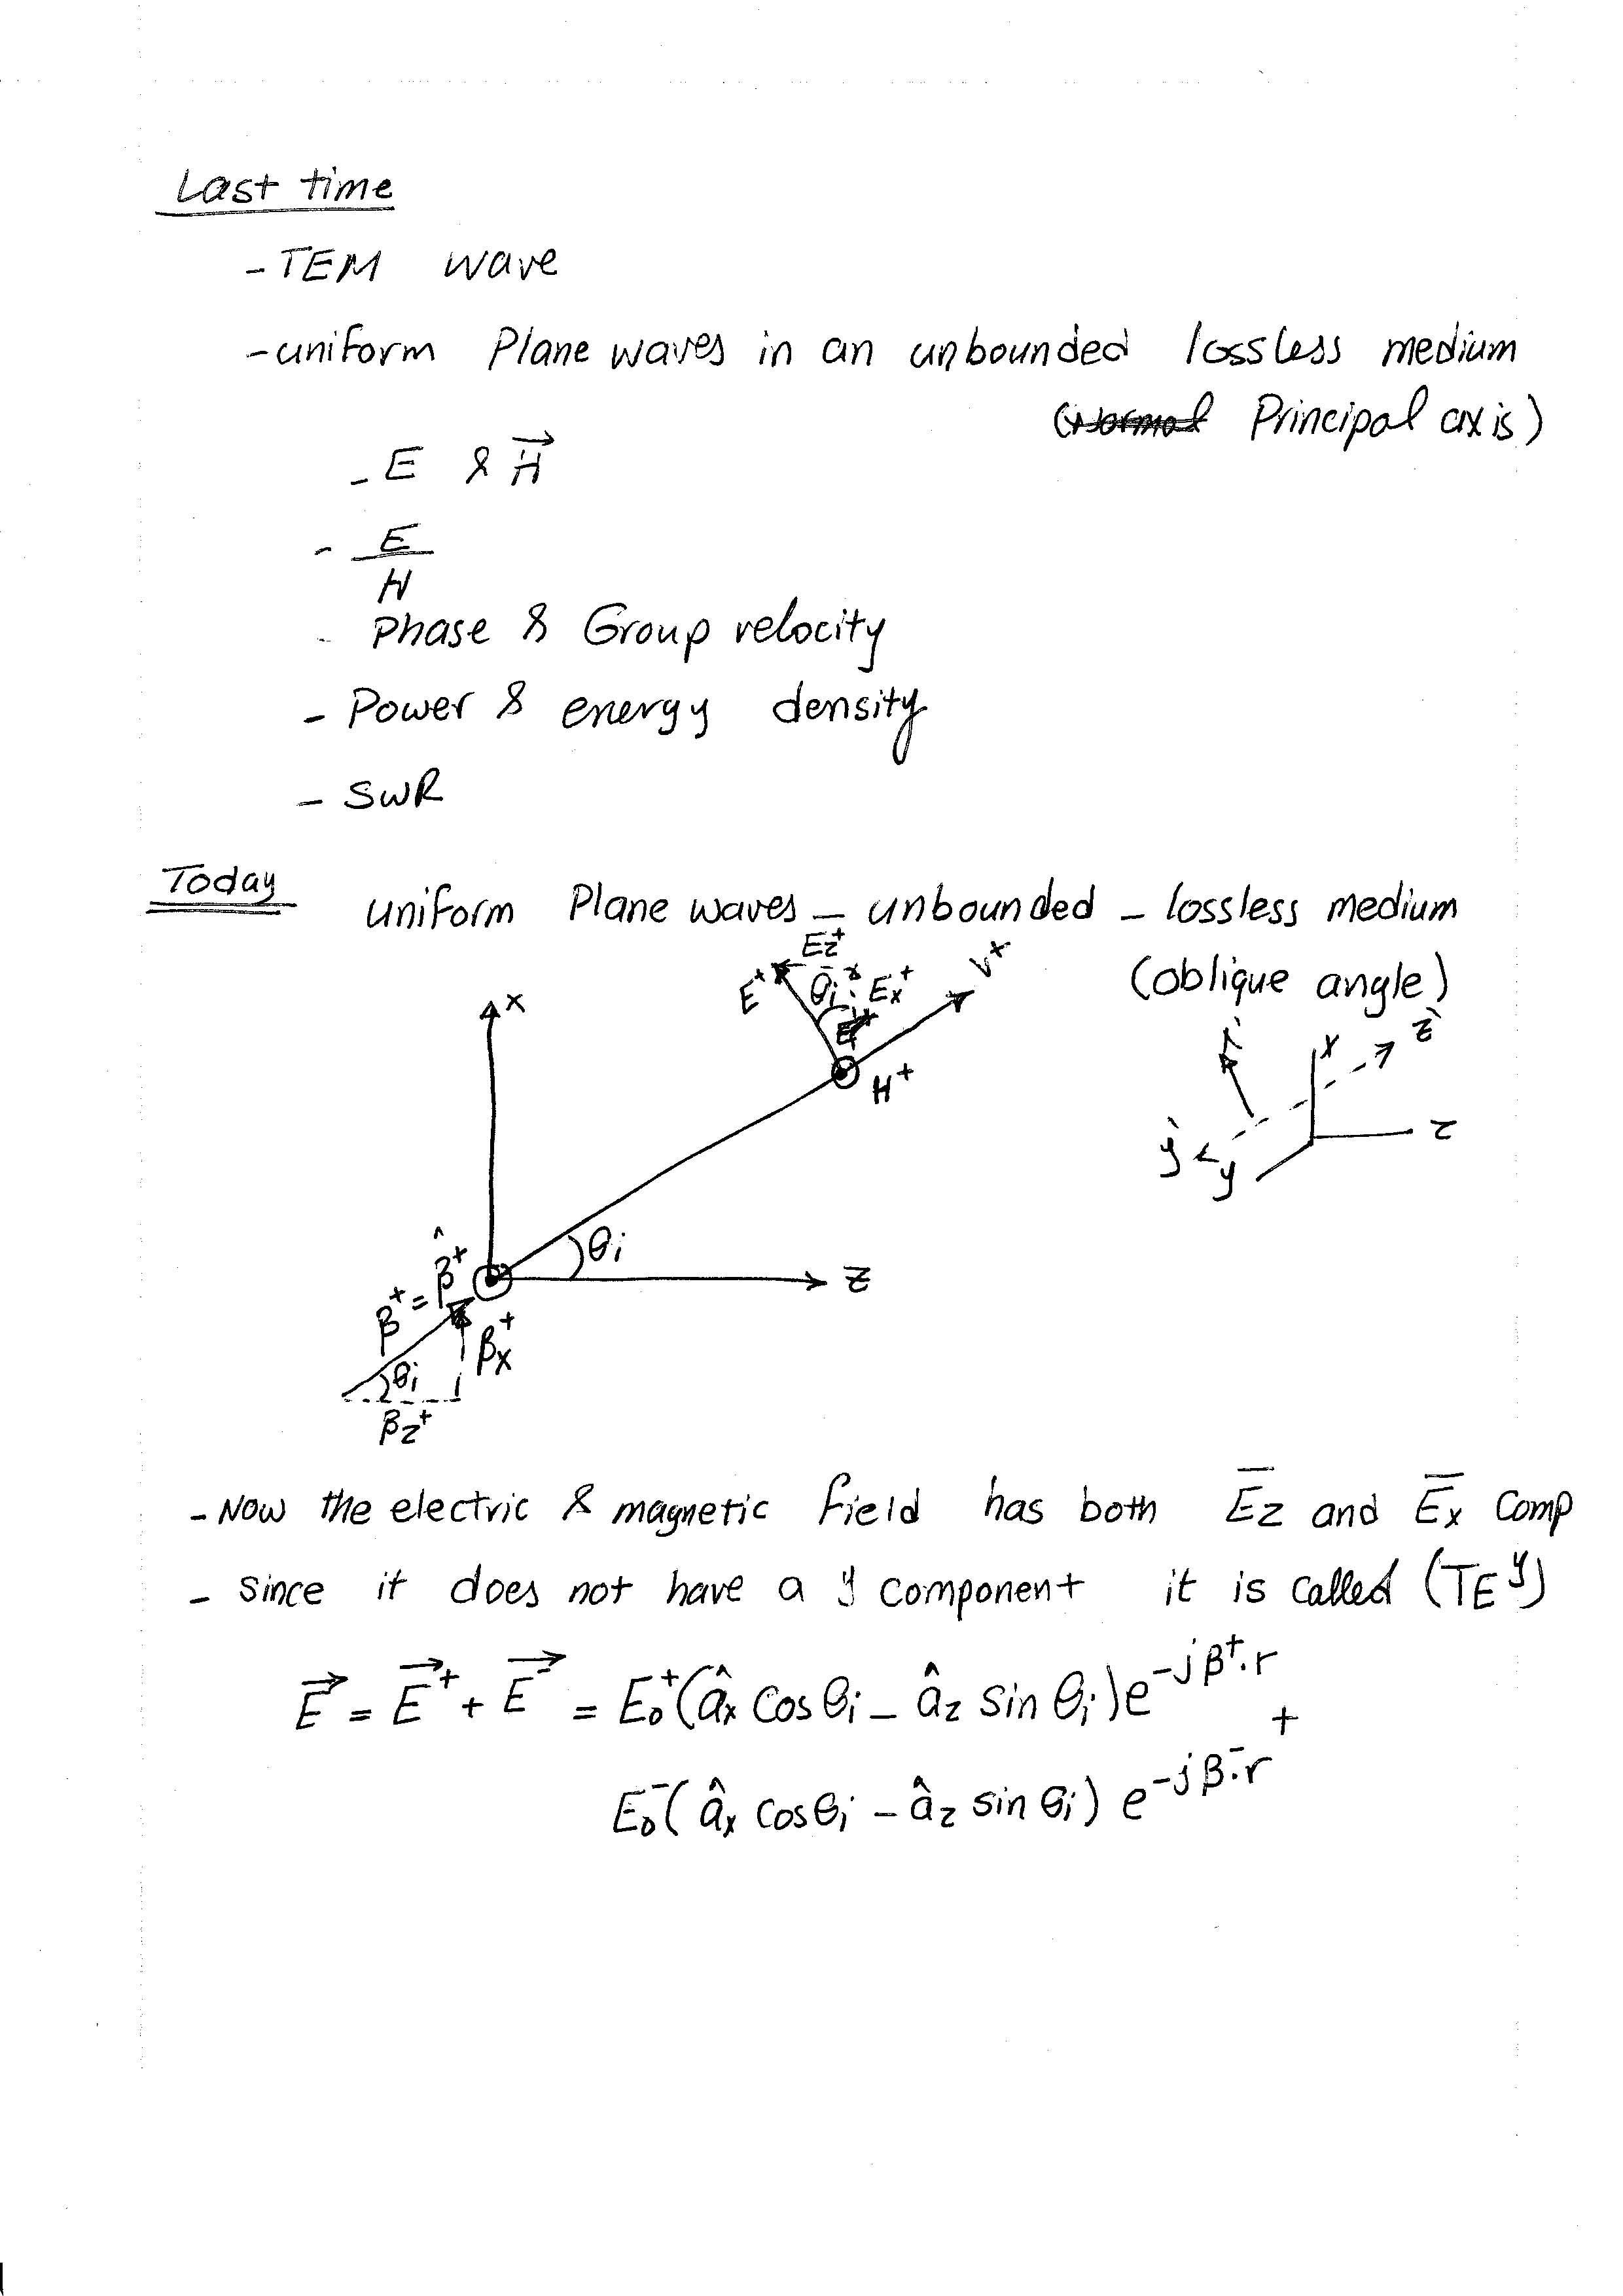 Last time
- TEM wave
- uniform Plane waves in an unbounded lossless medium
(Normal Principal axis)
- E & H⃗
- E/H
- Phase & Group velocity
- Power & energy density
- SWR
Today uniform Plane waves - unbounded - lossless medium
(oblique angle)
Ez+
E+ θi Ex+ v+
x
H+
x z'
z
y' y
θi
z
β+ = β̂+
βx+
θi
βz+
- Now the electric & magnetic field has both E̅z and E̅x Comp
- Since it does not have a y component it is called (TE^y)
E⃗ = E⃗+ + E⃗- = E0+(âx cosθi - âz sin θi)e^-jβ+.r +
E0-(âx cosθi - âz sin θi) e^-jβ-.r